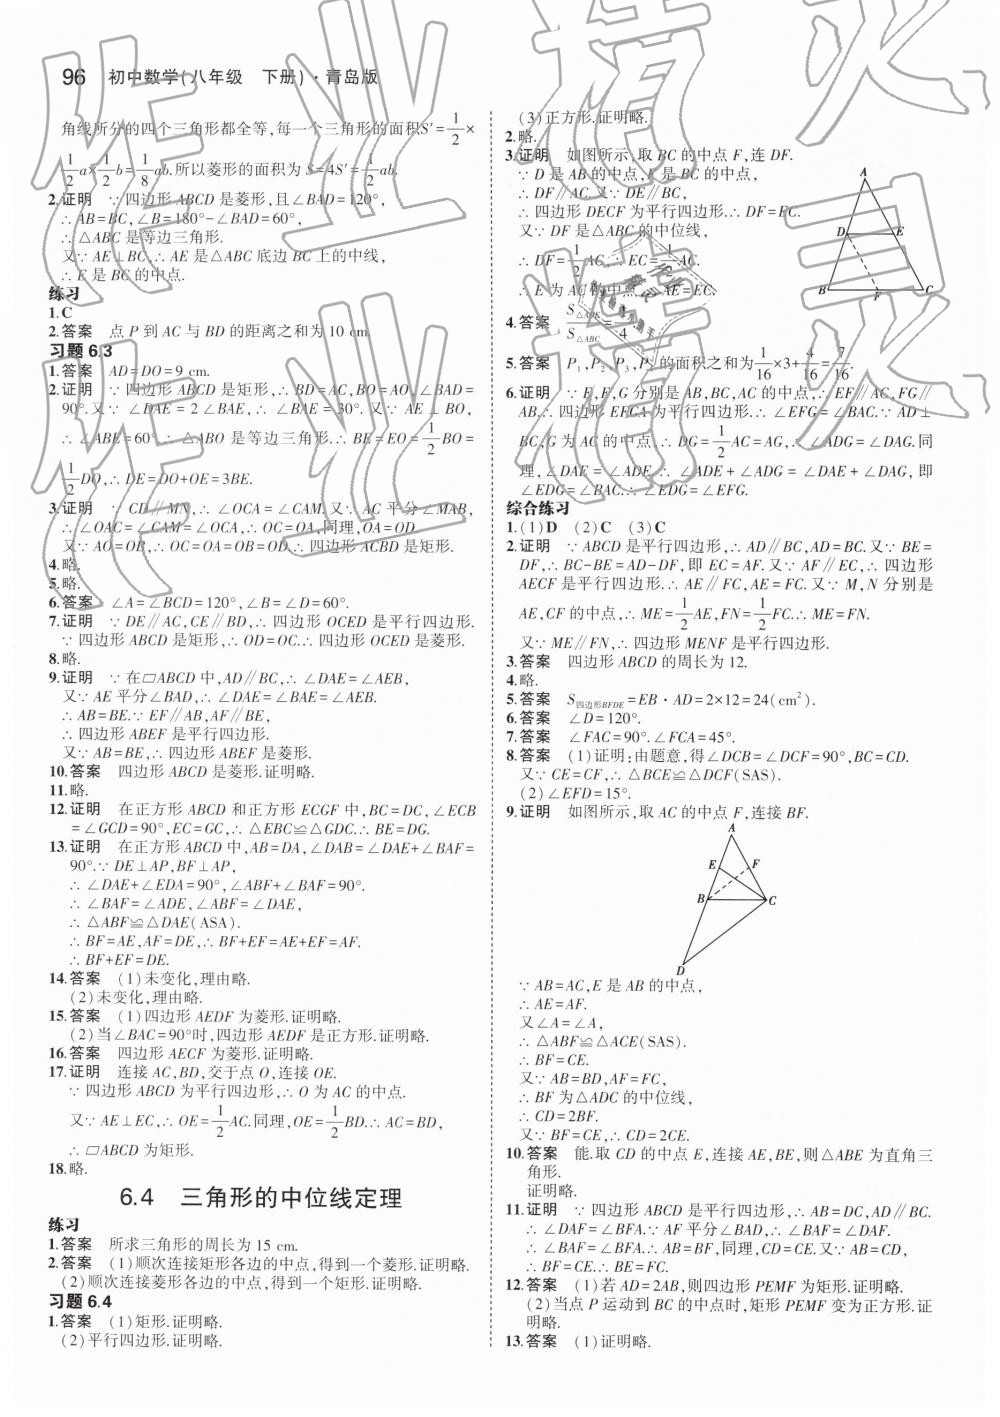 96 初中数学(八年级 下册)·青岛版
角线所分的四个三角形都全等,每一个三角形的面积S′=1/2×
1/2a×1/2b=1/8ab.所以菱形的面积为 S=4S′=1/2ab.
2.证明 ∵四边形 ABCD 是菱形,且∠BAD=120°,
∴AB=BC,∠B=180°-∠BAD=60°,
∴△ABC 是等边三角形.
又∵AE⊥BC,∴AE 是△ABC 底边 BC 上的中线,
∴E 是 BC 的中点.
练习
1.C
2.答案 点 P 到 AC 与 BD 的距离之和为 10 cm.
习题 6.3
1.答案 AD=DO=9 cm.
2.证明 ∵四边形 ABCD 是矩形,∴BD=AC,BO=AO,∠BAD=
90°.又∵∠DAE=2∠BAE,∴∠BAE=30°.又∵AE⊥BO,
∴∠ABE=60°.∴△ABO 是等边三角形.∴BE=EO=1/2BO=
1/2DO,∴DE=DO+OE=3BE.
3.证明 ∵CD∥MN,∴∠OCA=∠CAM.又∵AC 平分∠MAB,
∴∠OAC=∠CAM=∠OCA,∴OC=OA,同理,OA=OD.
又∵AO=OB,∴OC=OA=OB=OD.∴四边形 ACBD 是矩形.
4.略.
5.略.
6.答案 ∠A=∠BCD=120°,∠B=∠D=60°.
7.证明 ∵DE∥AC,CE∥BD,∴四边形 OCED 是平行四边形.
∵四边形 ABCD 是矩形,∴OD=OC.∴四边形 OCED 是菱形.
8.略.
9.证明 ∵在▱ABCD 中,AD∥BC,∴∠DAE=∠AEB,
又∵AE 平分∠BAD,∴∠DAE=∠BAE=∠AEB.
∴AB=BE.∵EF∥AB,AF∥BE,
∴四边形 ABEF 是平行四边形.
又∵AB=BE,∴四边形 ABEF 是菱形.
10.答案 四边形 ABCD 是菱形.证明略.
11.略.
12.证明 在正方形 ABCD 和正方形 ECGF 中,BC=DC,∠ECB
=∠GCD=90°,EC=GC,∴△EBC≌△GDC.∴BE=DG.
13.证明 在正方形 ABCD 中,AB=DA,∠DAB=∠DAE+∠BAF=
90°.∵DE⊥AP,BF⊥AP,
∴∠DAE+∠EDA=90°,∠ABF+∠BAF=90°.
∴∠BAF=∠ADE,∠ABF=∠DAE,
∴△ABF≌△DAE(ASA).
∴BF=AE,AF=DE,∴BF+EF=AE+EF=AF.
∴BF+EF=DE.
14.答案 (1)未变化,理由略.
(2)未变化,理由略.
15.答案 (1)四边形 AEDF 为菱形.证明略.
(2)当∠BAC=90°时,四边形 AEDF 是正方形.证明略.
16.答案 四边形 AECF 为菱形.证明略.
17.证明 连接 AC,BD,交于点 O,连接 OE.
∵四边形 ABCD 为平行四边形,∴O 为 AC 的中点.
又∵AE⊥EC,∴OE=1/2AC.同理,OE=1/2BD.∴AC=BD,
∴▱ABCD 为矩形.
18.略.
6.4 三角形的中位线定理
练习
1.答案 所求三角形的周长为 15 cm.
2.答案 (1)顺次连接矩形各边的中点,得到一个菱形.证明略.
(2)顺次连接菱形各边的中点,得到一个矩形.证明略.
习题 6.4
1.答案 (1)矩形.证明略.
(2)平行四边形.证明略.
(3)正方形.证明略.
2.略.
3.证明 如图所示,取 BC 的中点 F,连 DF.
∵D 是 AB 的中点,F 是 BC 的中点,
∴DF∥AC.又∵DE∥BC,
∴四边形 DECF 为平行四边形.∴DF=EC.
又∵DF 是△ABC 的中位线,
∴DF=1/2AC.∴EC=1/2AC.
∴E 为 AC 的中点.∴AE=EC.
A
D E
B F C
4.答案 S△ADE/S△ABC=1/4.
5.答案 P1,P2,P3,P7的面积之和为1/16×3+4/16=7/16.
6.证明 ∵E,F,G 分别是 AB,BC,AC 的中点,∴EF∥AC,FG∥
AB,∴四边形 EFGA 为平行四边形.∴∠EFG=∠BAC.∵AD⊥
BC,G 为 AC 的中点,∴DG=1/2AC=AG,∴∠ADG=∠DAG.同
理,∠DAE=∠ADE.∴∠ADE+∠ADG=∠DAE+∠DAG,即
∠EDG=∠BAC.∴∠EDG=∠EFG.
综合练习
1.(1)D (2)C (3)C
2.证明 ∵ABCD 是平行四边形,∴AD∥BC,AD=BC.又∵BE=
DF,∴BC-BE=AD-DF,即 EC=AF.又∵AF∥EC,∴四边形
AECF 是平行四边形.∴AE∥FC,AE=FC.又∵M,N 分别是
AE,CF 的中点,∴ME=1/2AE,FN=1/2FC.∴ME=FN.
又∵ME∥FN,∴四边形 MENF 是平行四边形.
3.答案 四边形 ABCD 的周长为 12.
4.略.
5.答案 S四边形BFDE=EB·AD=2×12=24(cm²).
6.答案 ∠D=120°.
7.答案 ∠FAC=90°.∠FCA=45°.
8.答案 (1)证明:由题意,得∠DCB=∠DCF=90°,BC=CD.
又∵CE=CF,∴△BCE≌△DCF(SAS).
(2)∠EFD=15°.
9.证明 如图所示,取 AC 的中点 F,连接 BF.
A
E F
B C
D
∵AB=AC,E 是 AB 的中点,
∴AE=AF.
又∠A=∠A,
∴△ABF≌△ACE(SAS).
∴BF=CE.
又∵AB=BD,AF=FC,
∴BF 为△ADC 的中位线,
∴CD=2BF.
又∵BF=CE,∴CD=2CE.
10.答案 能.取 CD 的中点 E,连接 AE,BE,则△ABE 为直角三
角形.
证明略.
11.证明 ∵四边形 ABCD 是平行四边形,∴AB=DC,AD∥BC.
∴∠DAF=∠BFA.∵AF 平分∠BAD,∴∠BAF=∠DAF.
∴∠BAF=∠BFA.∴AB=BF,同理,CD=CE.又∵AB=CD,
∴BF=CE.∴BE=FC.
12.答案 (1)若 AD=2AB,则四边形 PEMF 为矩形.证明略.
(2)当点 P 运动到 BC 的中点时,矩形 PEMF 变为正方形.证
明略.
13.答案 (1)证明略.
作业精灵
作业精灵